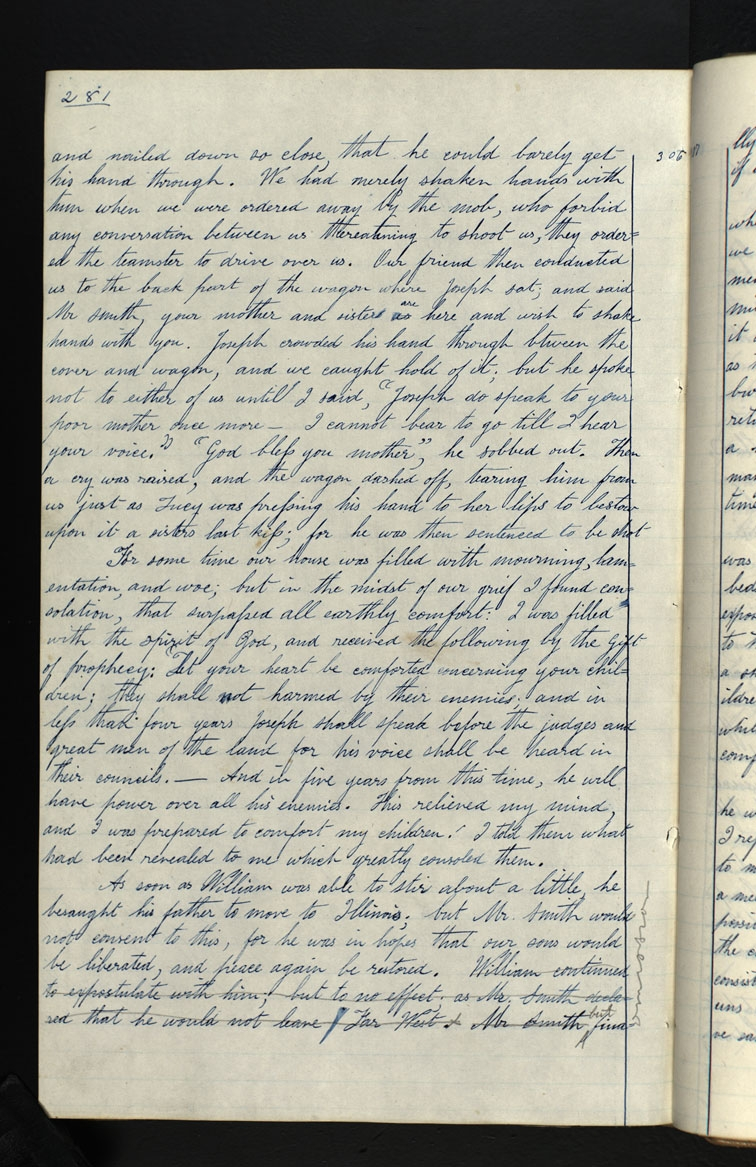 281
and nailed down so close, that he could barely get
his hand through. We had merely shaken hands with
him when we were ordered away by the mob, who forbid
any conversation between us thereatening to shoot us, they order=
ed the teamster to drive over us. Our friend then conducted
us to the back part of the wagon where Joseph sat; and said
Mr Smith, your mother and sister are here and wish to shake
hands with you. Joseph crowded his hand through btween the
cover and wagon, and we caught hold of it; but he spoke
not to either of us until I said, "Joseph do speak to your
poor mother once more — I cannot bear to go till I hear
your voice." "God bless you mother", he sobbed out. Then
a cry was raised, and the wagon dashed off, tearing him from
us just as Lucy was pressing his hand to her lips to bestow
upon it a sisters last kiss; for he was then sentenced to be shot
For some time our house was filled with mourning, lam=
entation, and woe; but in the midst of our grief I found con=
solation, that surpassed all earthly comfort: I was filled
with the spirit of God, and received the following by the gift
of prophecy: "Let your heart be comforted concerning your chil-
dren; they shall not harmed by their enemies; and in
less that four years Joseph shall speak before the judges and
great men of the land for his voice shall be heard in
their councils. — And in five years from this time, he will
have power over all his enemies. This relieved my mind,
and I was prepared to comfort my children. I told them what
had been revealed to me which greatly consoled them.
As soon as William was able to stir about a little, he
besaught his father to move to Illinois; but Mr. Smith would
not consent to this, for he was in hopes that our sons would
be liberated, and peace again be restored. William continued
to expostulate with him; but to no effect; as Mr. Smith decla-
red that he would not leave Far West & Mr Smith, but fina
306
omission